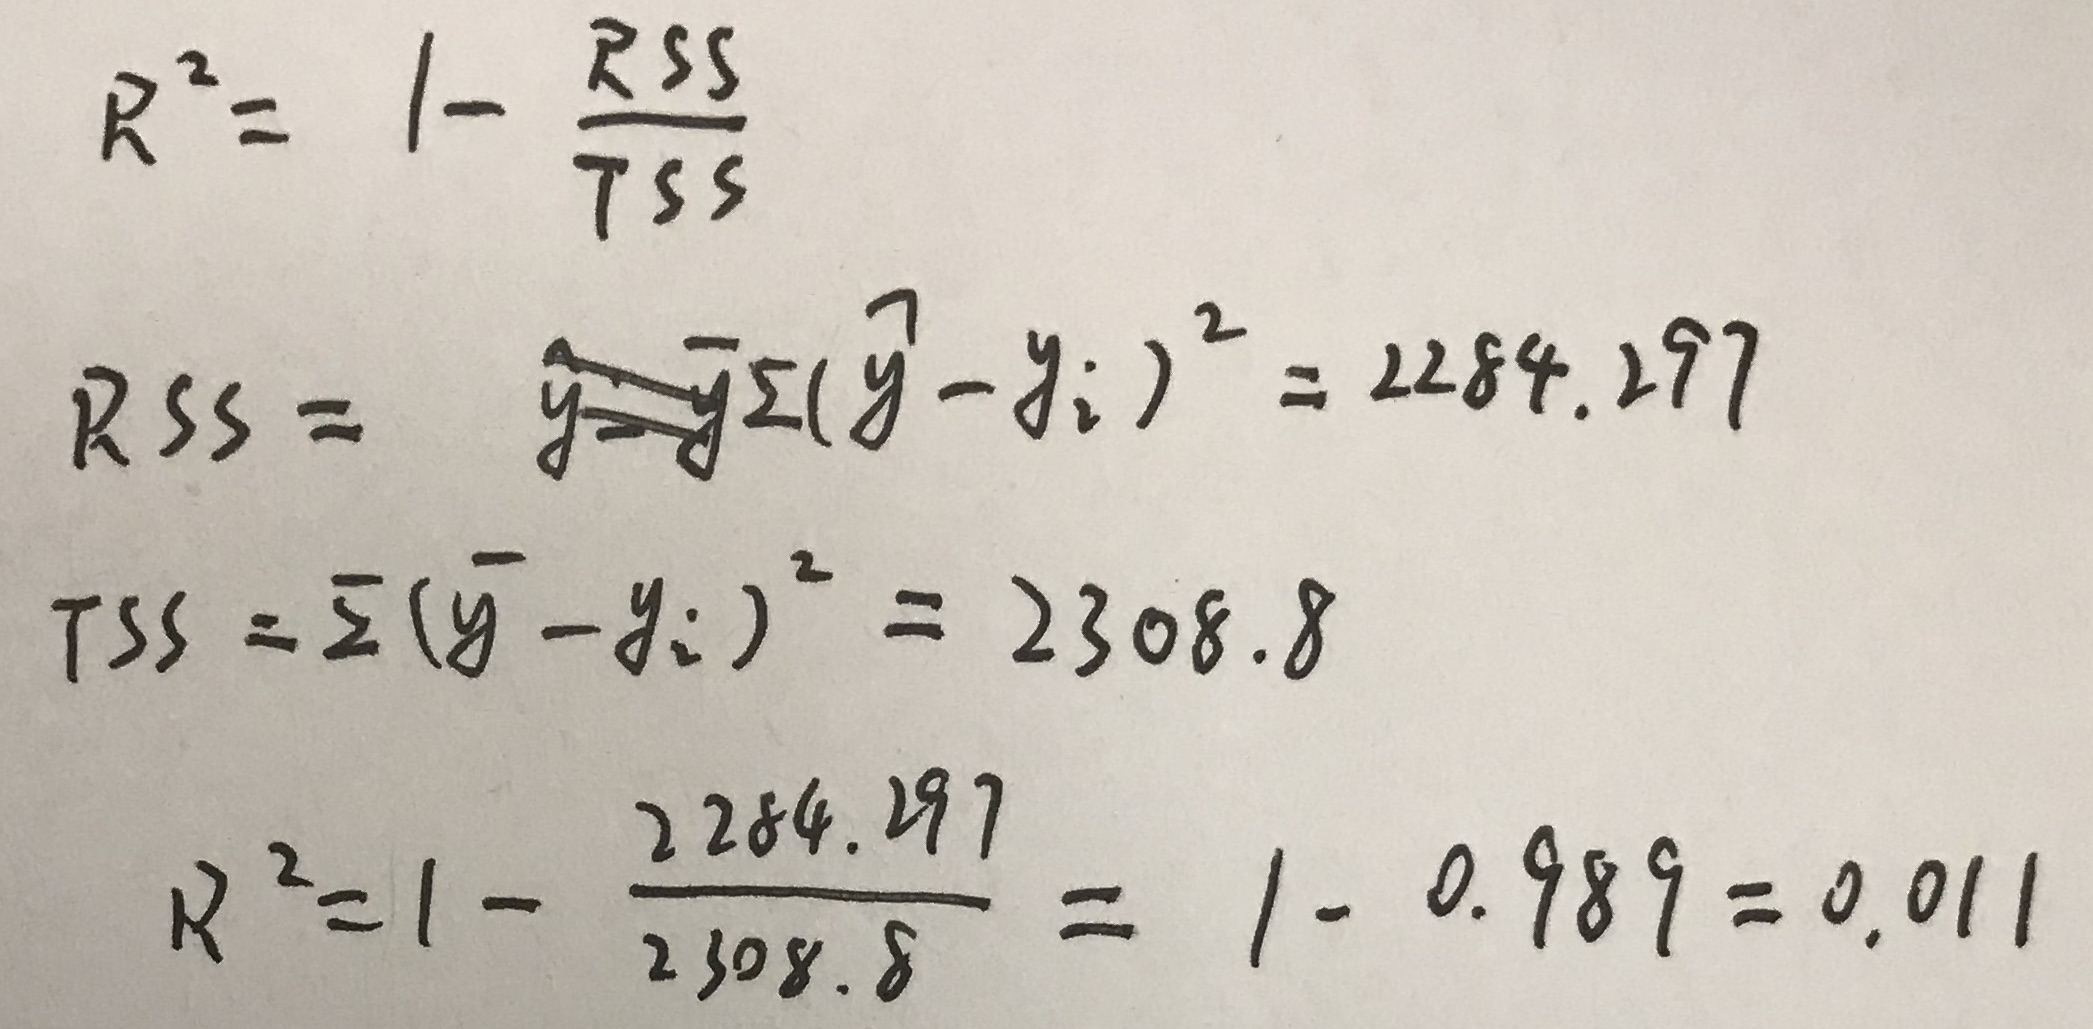 R² = 1 - RSS / TSS
RSS = ŷ - ȳ Σ(ŷ - yᵢ)² = 2284.297
TSS = Σ(ȳ - yᵢ)² = 2308.8
R² = 1 - 2284.297 / 2308.8 = 1 - 0.989 = 0.011